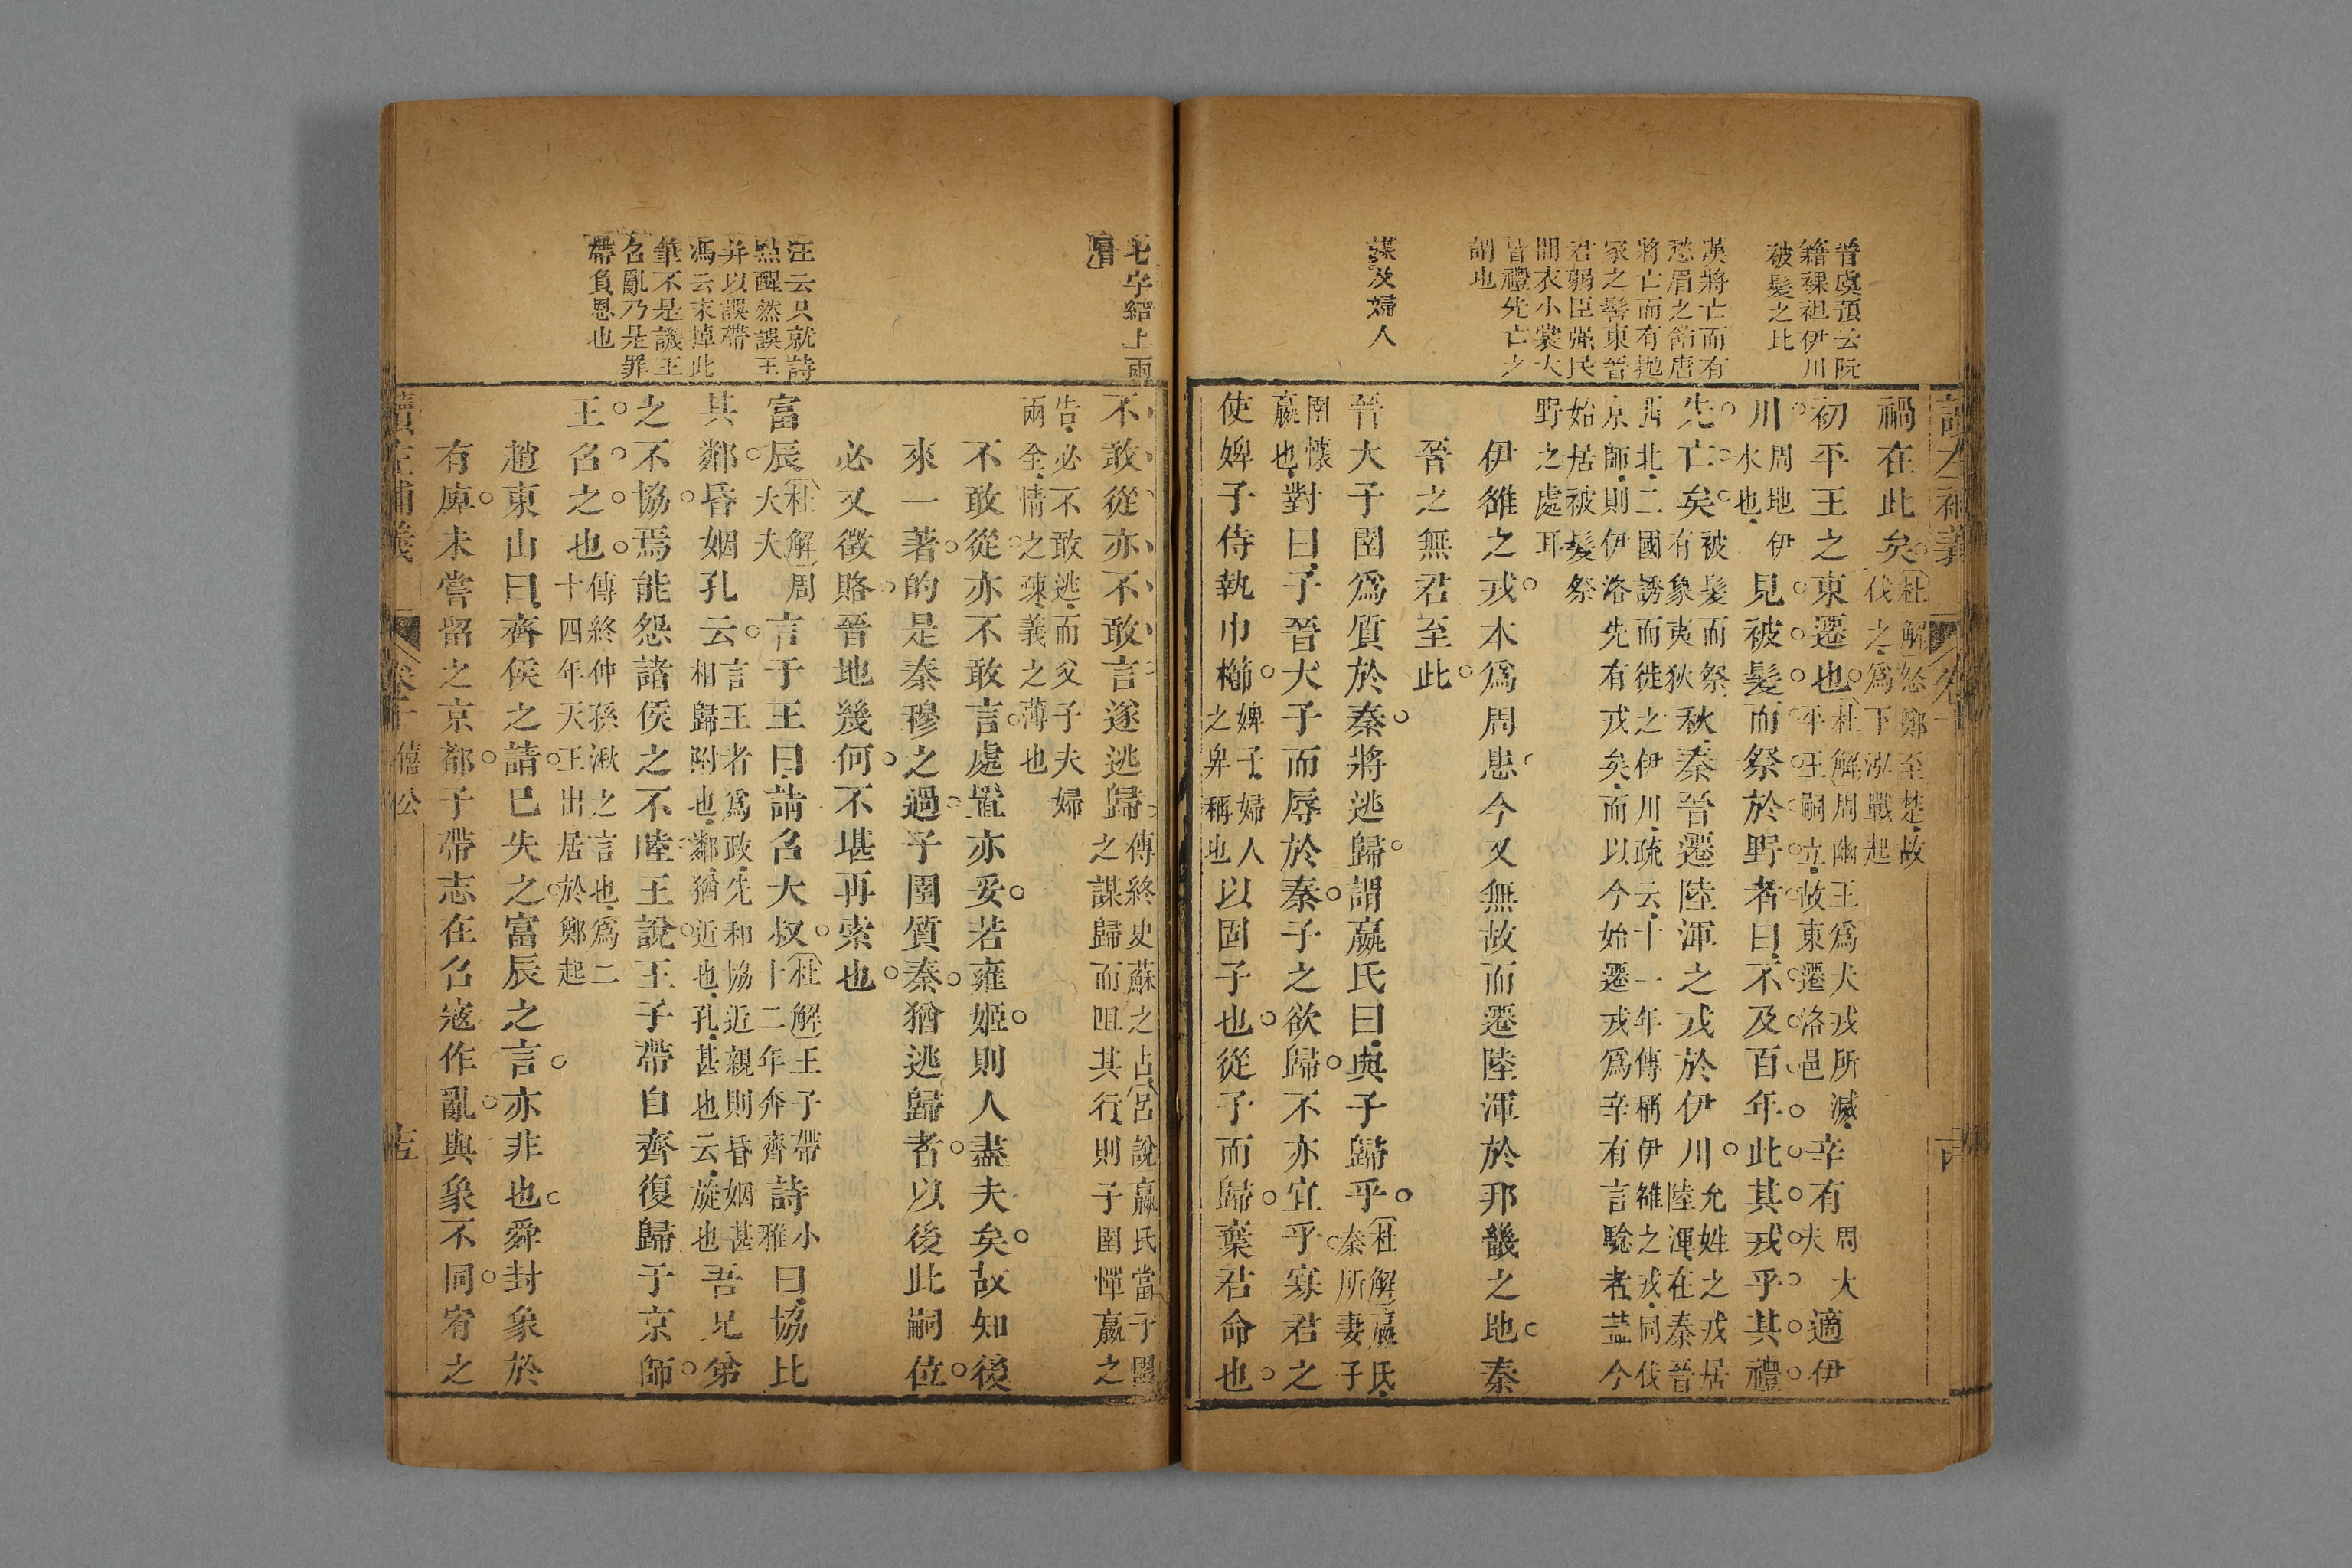 晉虞預云阮
籍裸袒伊川
被髮之比
漢將亡而有
愁眉之飾唐
將亡而有抛
家之髻東晉
君弱臣强民
間衣小裳大
皆禮先亡之
謂也
謀及婦人
禍在此矣杜解怒鄭至楚故
伐之爲下泓戰起
初平王之東遷也杜解周幽王爲犬戎所滅
平王嗣立故東遷洛邑辛有周大
夫適伊
川周地伊
水也見被髮而祭於野者曰不及百年此其戎乎其禮
先亡矣被髮而祭
有象夷狄秋秦晉遷陸渾之戎於伊川允姓之戎居
陸渾在秦晉
西北二國誘而徙之伊川疏云十一年傳稱伊雒之戎同伐
京師則伊洛先有戎矣而以今始遷戎爲辛有言騐者蓋今
始居被髮祭
野之處耳
伊雒之戎本爲周患今又無故而遷陸渾於邦畿之地秦
晉之無君至此
晉大子圉爲質於秦將逃歸謂嬴氏曰與子歸乎杜解嬴氏
秦所妻子
圉懷
嬴也對曰子晉大子而辱於秦子之欲歸不亦宜乎寡君之
使婢子侍執巾櫛婢子婦人
之卑稱也以固子也從子而歸棄君命也
七字紹上兩
不敢從亦不敢言遂逃歸傳終史蘇之占宮說嬴氏當子圉
之謀歸而阻其行則子圉憚嬴之
告必不敢逃而父子夫婦
兩全情之疎義之薄也
不敢從亦不敢言處置亦妥若雍姬則人盡夫矣故知後
來一著的是秦穆之過子圉質秦猶逃歸者以後此嗣位
必又徵賂晉地幾何不堪再索也
汪云只就詩
點醒然誤王
并以誤帶
馮云末掉此
筆不是譏王
名亂乃是罪
帶負恩也
富辰杜解周
大夫言于王曰請召大叔杜解王子帶
十二年奔齊詩小
雅曰協比
其鄰昏姻孔云言王者爲政先和協近親則昏姻甚
相歸附也鄰猶近也孔甚也云旋也吾兄弟
之不協焉能怨諸侯之不睦王說王子帶自齊復歸于京師
王召之也傳終仲孫湫之言也爲二
十四年天王出居於鄭起
趙東山曰齊侯之請已失之富辰之言亦非也舜封象於
有庳未嘗留之京都子帶志在召寇作亂與象不同宥之
讀左補義
卷十
僖公